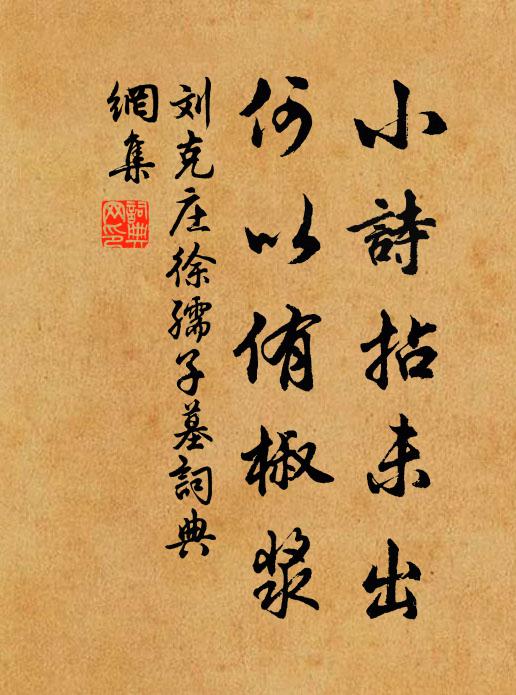 小詩拈未出
何以侑椒漿
刘克庄徐孺子墓詞典
網集
詞典網印